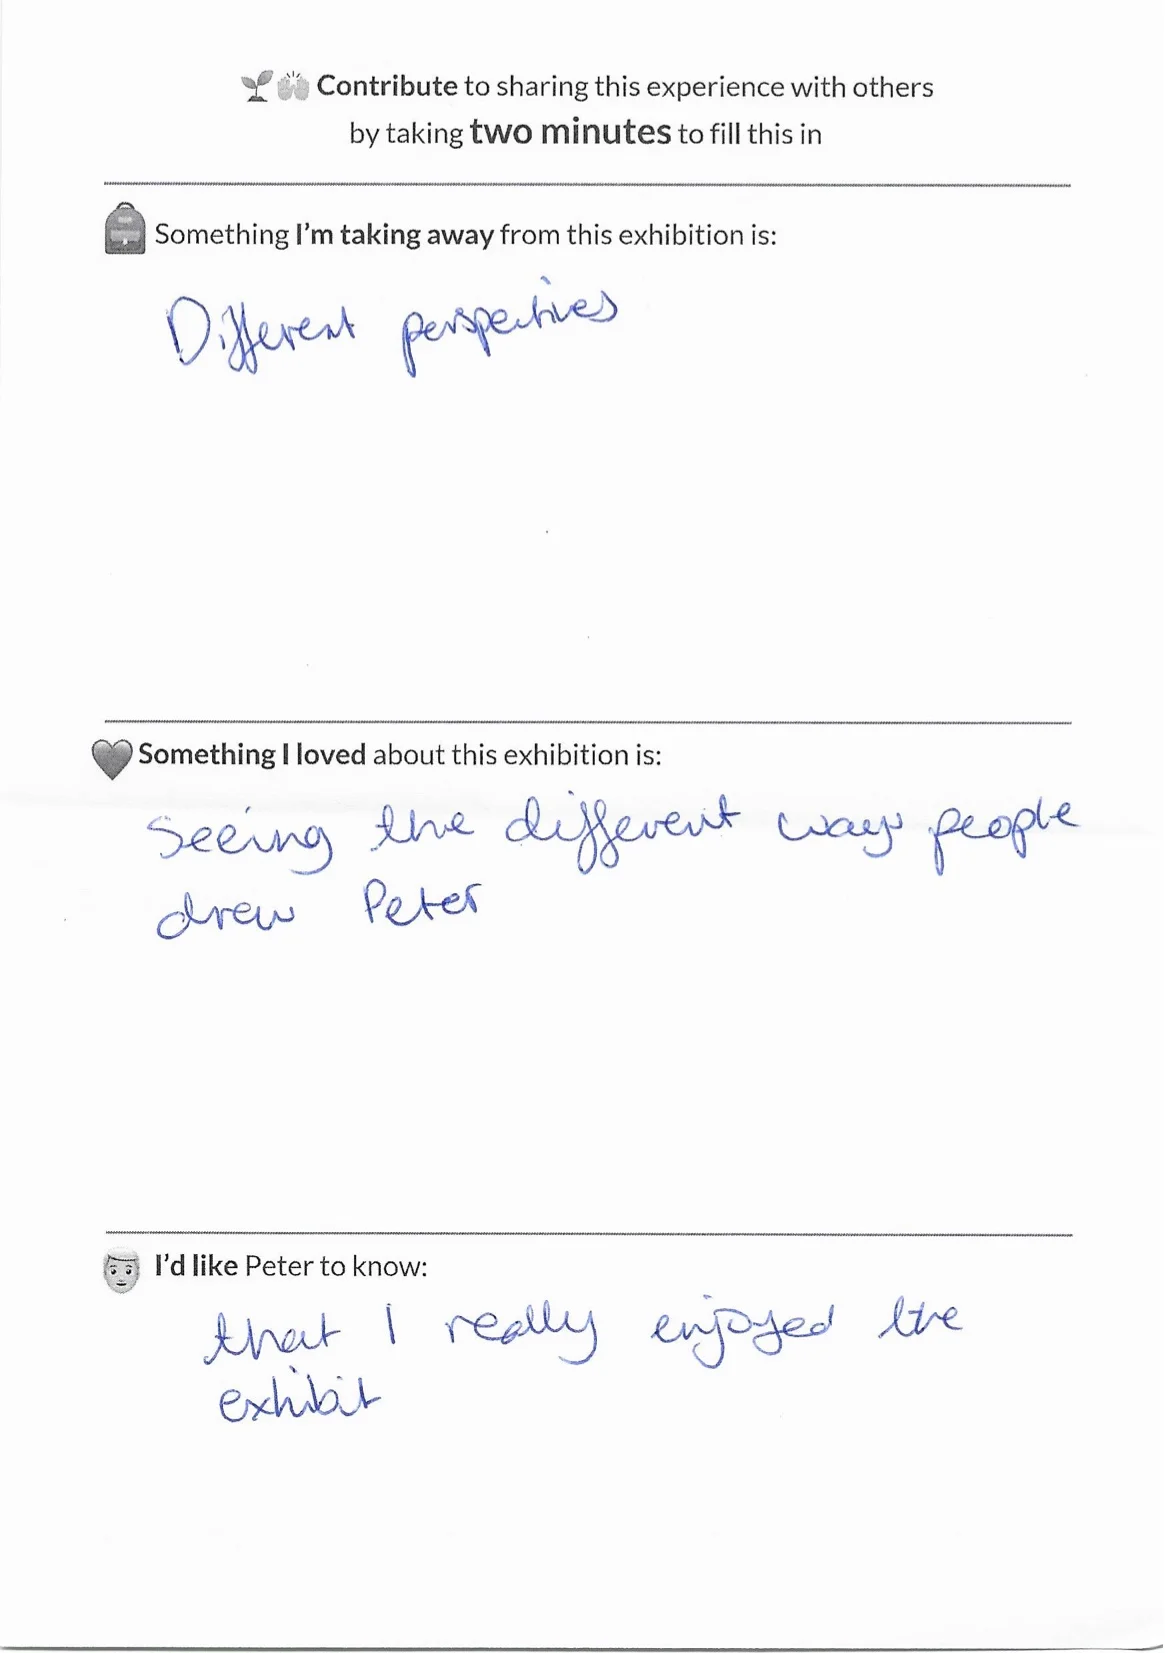 Contribute to sharing this experience with others
by taking two minutes to fill this in
Something I'm taking away from this exhibition is:
Different perspectives
Something I loved about this exhibition is:
Seeing the different ways people
drew Peter
I'd like Peter to know:
that I really enjoyed the
exhibit